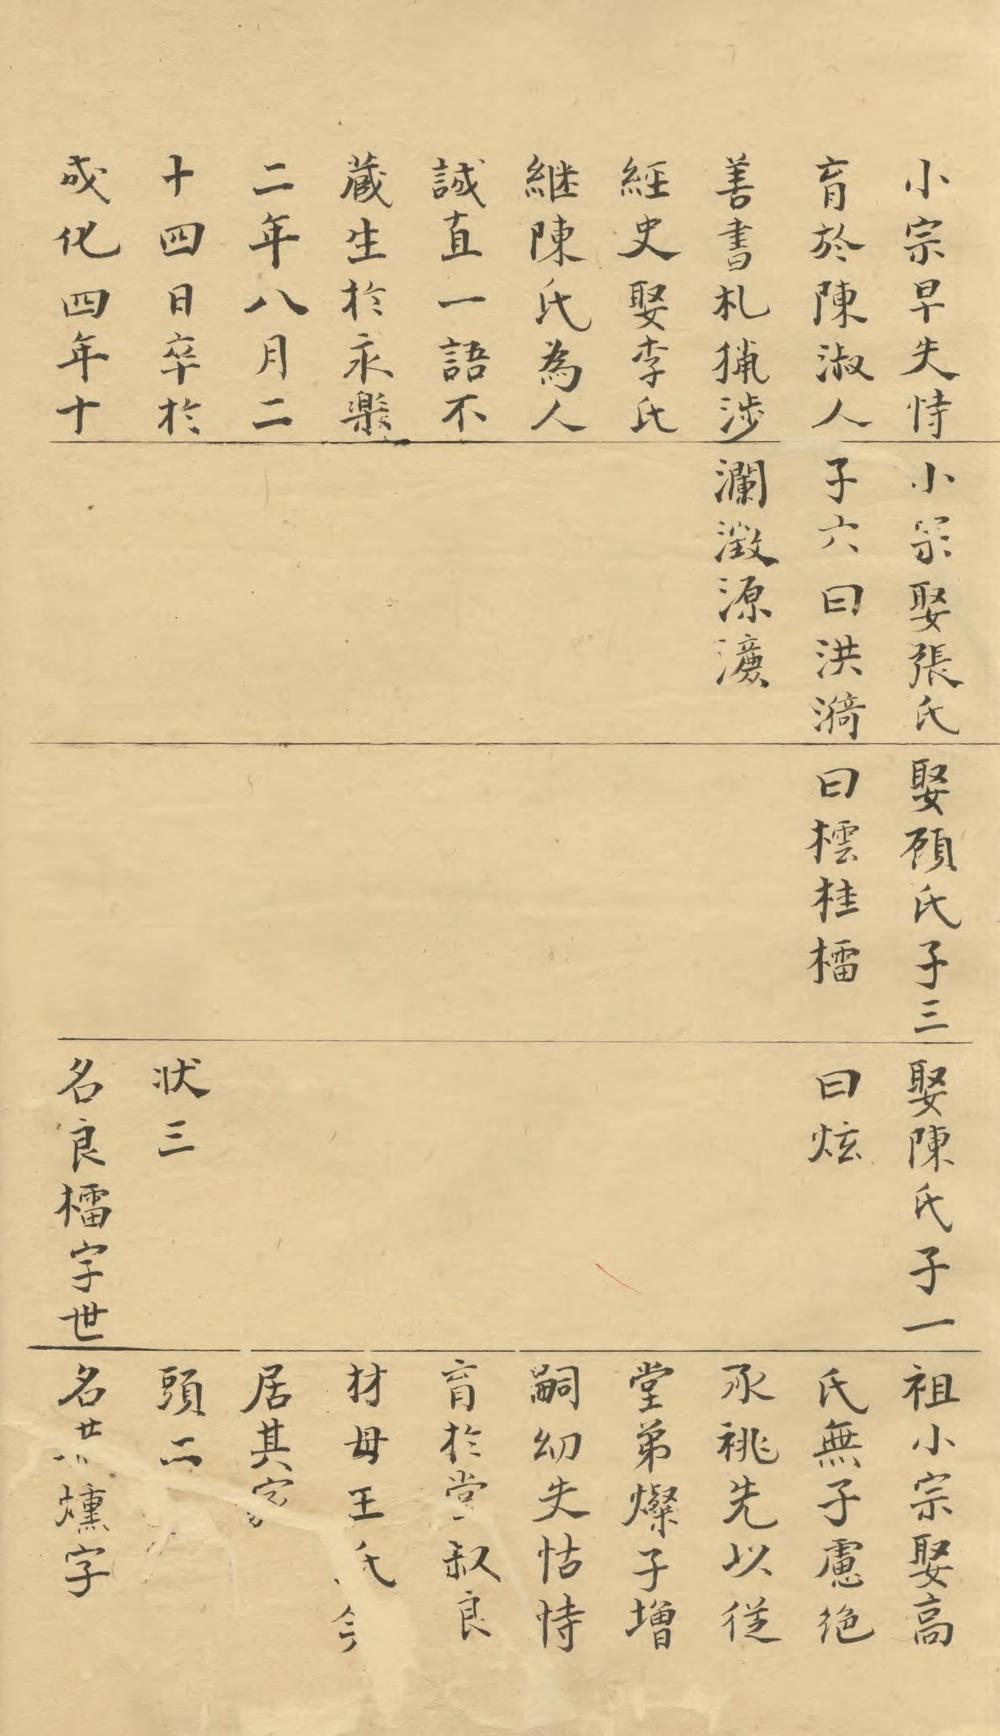 小宗早失恃
育於陳淑人
善書札獵涉
經史娶李氏
継陳氏為人
誠直一語不
蔵生於永樂
二年八月二
十四日卒於
成化四年十
小宗娶張氏
子六曰洪漪
瀾澂源瀌
娶顧氏子三
曰橒桂橊
娶陳氏子一
曰炫
状三
名良橊字世
祖小宗娶高
氏無子慮絶
承祧先以從
堂弟燦子增
嗣幼失怙恃
育於堂叔良
材母王氏今
居其家
頭二
名燻字